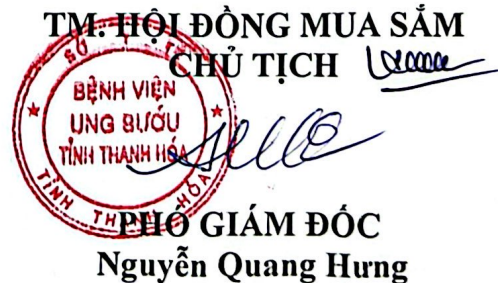 TM. HỘI ĐỒNG MUA SẮM
CHỦ TỊCH
BỆNH VIỆN
UNG BƯỚU
TỈNH THANH HÓA
TỈNH THANH HÓA
PHÓ GIÁM ĐỐC
Nguyễn Quang Hưng